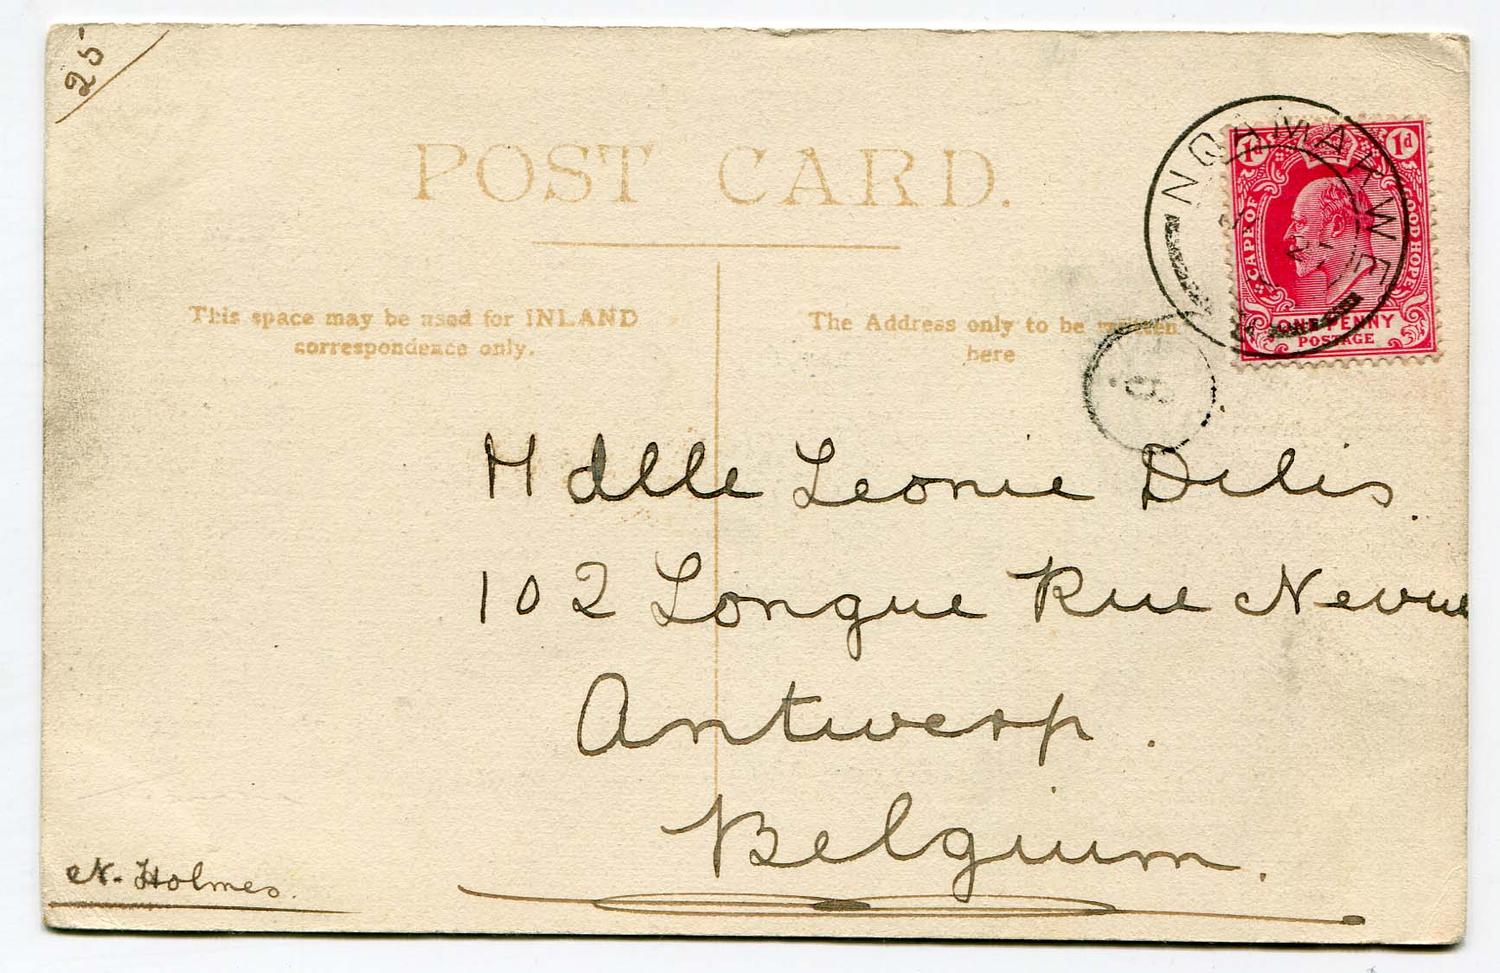 25
POST CARD.
This space may be used for INLAND
correspondence only.
The Address only to be written
here
NQAMAKWE
1d 1d
CAPE OF GOOD HOPE
ONE PENNY
POSTAGE
Mdlle Leonie Delis.
102 Longue Rue Nevue
Antwerp.
Belgium.
N. Holmes.